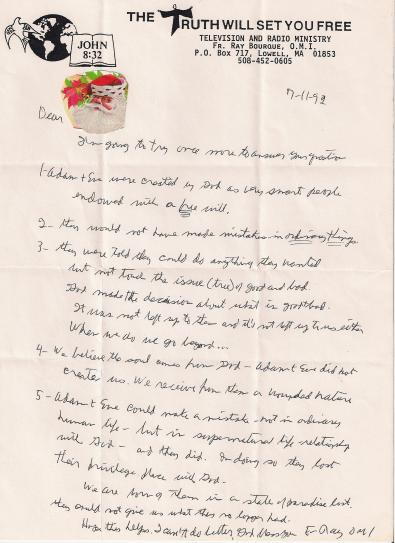 THE TRUTH WILL SET YOU FREE
JOHN
8:32
TELEVISION AND RADIO MINISTRY
FR. RAY BOURQUE, O.M.I.
P.O. BOX 717, LOWELL, MA 01853
508-452-0605
7-11-92
Dear
I'm going to try once more to answer questions
1- Adam + Eve were created by God as very smart people
endowed with a free will.
2- they would not have made mistakes in ordinary things
3- they were told they could do anything they wanted
but not touch the issue (tree) of good and bad.
God made the decision about what is good + bad.
It was not left up to them and it's not left up to us either
When we do we go beyond...
4- We believe the soul comes from God - Adam + Eve did not
create us. We receive from them a wounded nature
5- Adam + Eve could make a mistake - not in ordinary
human life - but in supernatural life - relationship
with God - and they did. In doing so they lost
their privilege place with God -
We are born of them in a state of paradise lost.
they could not give us what they no longer had.
Hope this helps. I can't do better. God bless you Fr Ray OMI